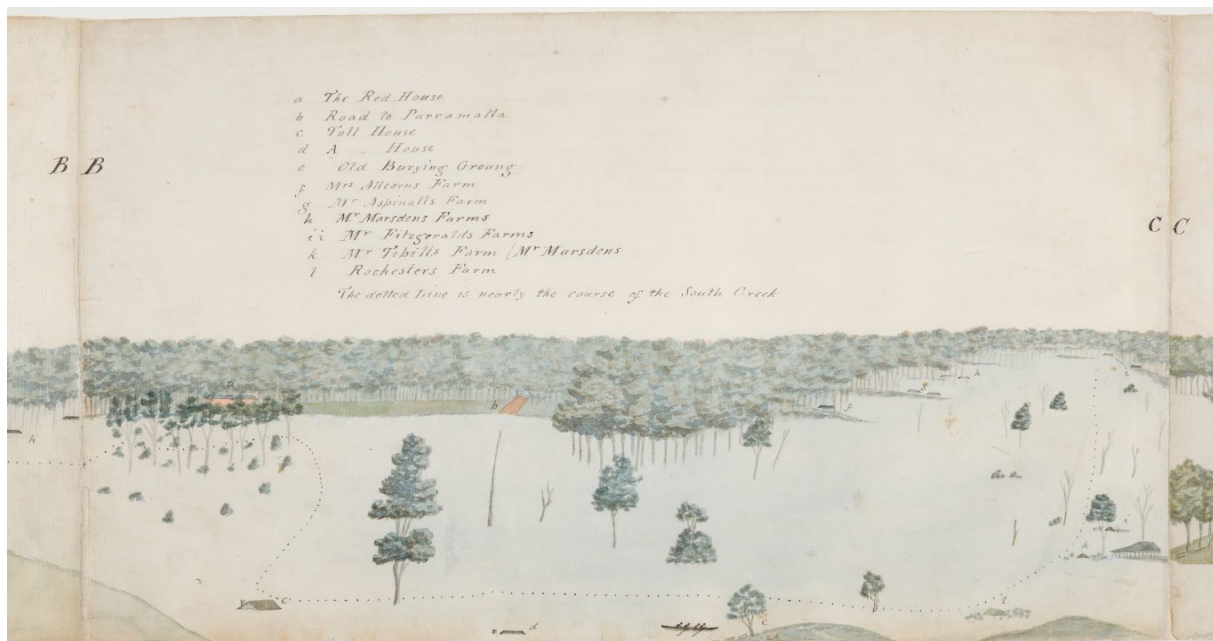 a The Red House
b Road to Parramatta
c Toll House
d A House
e Old Burying Groung
f Mrs Allcorns Farm
g Mr Aspinalls Farm
h Mr Marsdens Farms
ii Mr Fitzgeralds Farms
k Mr Tibills Farm (Mr Marsdens
l Rochesters Farm
The dotted Line is nearly the course of the South Creek
B B
C C
a
b
h
g
h
f
k
c
l
d